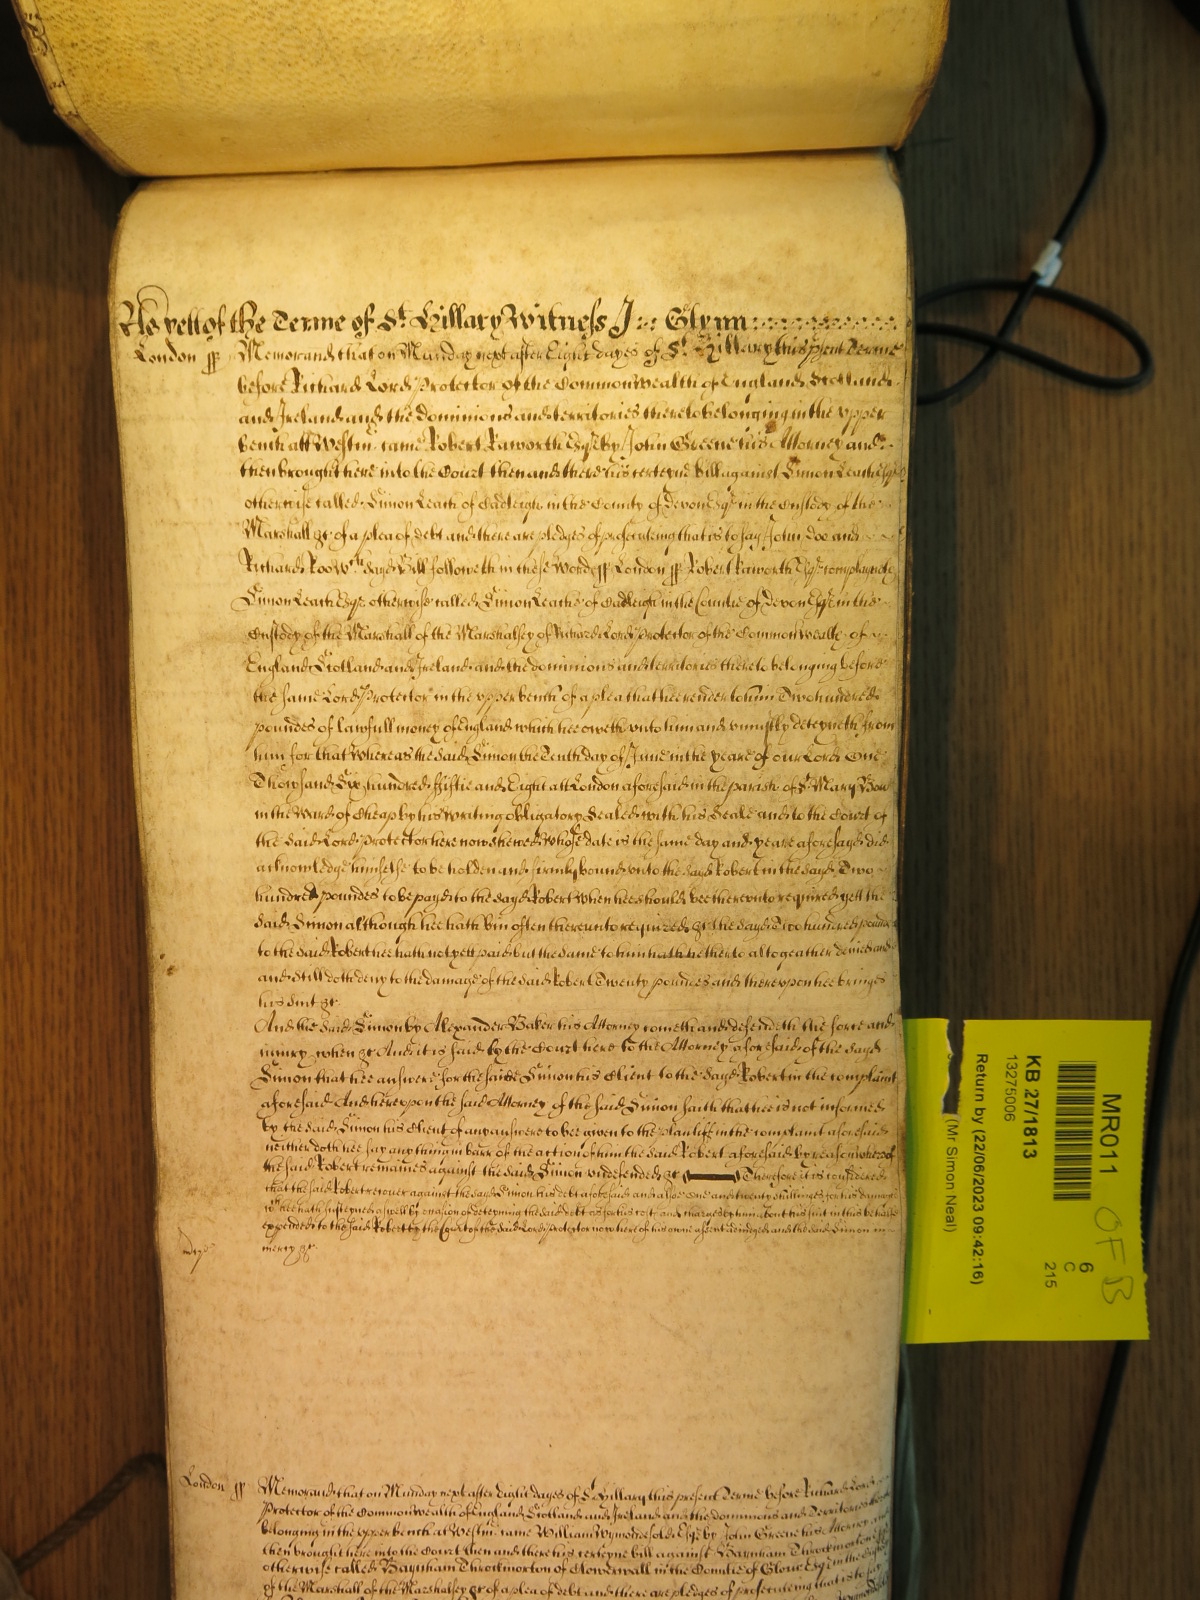 As yett of the Terme of St Hillary Witness J: Glynn
London ss Memorand that on Munday next after Eight dayes of St Hillary this present Terme
before Richard Lord Protector of the Commonwealth of England Scotland
and Ireland and the dominions and territories thereto belonging in the vpper
bench att Westm came Robert Raworth Esqr by John Greene his Attorney and
then brought here into the Court then and there his certeyne bill against Simon Leach Esqr
otherwise called Simon Leach of Cadleigh in the County of Devon Esqr in the Custody of the
Marshall &c of a plea of debt and there are pledges of prosecuteing that is to say John Doo and
Richard Roo Wch sayd Bill followeth in these Words ss London ss Robert Raworth Esqr complayneth
Simon Leach Esqr otherwise called Simon Leach of Cadleigh in the Countie of Devon Esqr in the
Custody of the Marshall of the Marshalsey of Richard Lord Protector of the Commonwealth of
England Scotland and Ireland and the dominions and territories thereto belonging before
the same Lord Protector in the vpper bench of a plea that hee render to him Two hundred
poundes of lawfull money of England which hee oweth vnto him and vniustly deteyneth from
him for that Whereas the said Simon the Tenth day of June in the yeare of our Lord One
Thowsand Six hundred fiftie and Eight att London aforesaid in the parish of St Mary Bow
in the Ward of Cheap by his writing obligatory Sealed with his Seale and to the Court of
the said Lord Protector here now shewed whose date is the same day and yeare aforesayd did
acknowledge himselfe to be holden and firmly bound vnto the sayd Robert in the sayd Two
hundred poundes to be payd to the sayd Robert when hee should bee therevnto required yett the
said Simon although hee hath bin often therevnto required &c the sayd Two hundred poundes
to the said Robert hee hath not yett paid but the same to him hath hitherto altogeather denied and
and still doth deny to the damage of the said Robert Twenty poundes and therevpon hee brings
his suit &c
And the said Simon by Alexander Baker his Attorney cometh and defendeth the force and
iniury when &c And it is said by the Court here to the Attorney aforesaid of the sayd
Simon that hee answere for the saide Simon his Client to the sayd Robert in the complaint
aforesaid And herevpon the said Attorney of the said Simon saith that hee is not informed
by the said Simon his Client of any answere to bee given to the plantife in the complaint aforesaid
neither doth hee say any thing in barr of the action of him the said Robert aforesaid by reason whereof
the said Robert remaines against the said Simon vndefended &c Therefore it is considered
that the said Robert recouer against the sayd Simon his debt aforesaid and alsoe One and twenty shillinges for his damages
wch hee hath susteyned aswell by occasion of deteyning the said debt as for his cost and charges by him about his suit in this behalfe
expended to the said Robert by the Court of the said Lord Protector now here of his owne assent adiudged and the said Simon in
mercy &c
London ss Memorand that on Munday next after Eight dayes of St Hillary this present Terme before Richard Lord
Protector of the Commonwealth of England Scotland and Ireland and the dominions and Territories thereto
belonging in the vpper bench at Westm came William Wymondesold Esqr by John Greene his Attorney and
then brought here into the Court then and there his certeyne bill against Baynham Throckmorton
otherwise called Baynham Throckmorton of Clowerwall in the Countie of Glouc Esqr in the Custody
of the Marshall of the Marshalsey &c of a plea of debt and there are pledges of prosecuteing that is to say
MR011
6
C
215
OF B
KB 27/1813
13275006
Return by (22/06/2023 09:42:16)
(Mr Simon Neal)